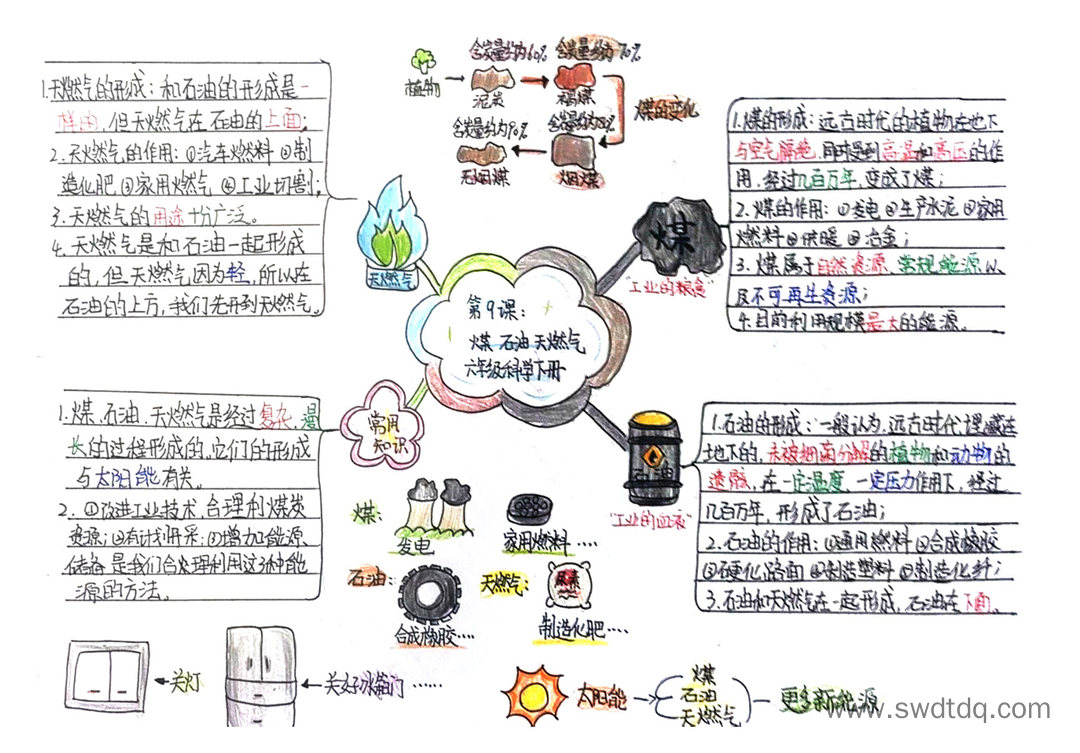 含炭量约为60%
含炭量约为70%
植物
泥炭
褐煤
煤的变化
含炭量约为90%
含炭量约为80%
无烟煤
烟煤
1.天燃气的形成：和石油的形成是一
样的，但天燃气在石油的上面；
2.天燃气的作用：①汽车燃料②制
造化肥③家用燃气 ④工业切割；
3.天燃气的用途十分广泛。
4.天燃气是和石油一起形成
的，但天燃气因为轻，所以在
石油的上方，我们先开到天燃气。
天燃气
1.煤的形成：远古时代的植物在地下
与空气隔绝，同时受到高温和高压的作
用，经过几百万年，变成了煤；
2.煤的作用：①发电②生产水泥③家用
燃料④供暖⑤冶金；
3.煤属于自然资源、常规能源以
及不可再生资源；
4.目前利用规模最大的能源。
煤
"工业的粮食"
第9课：
煤 石油 天燃气
六年级科学下册
1.煤、石油、天燃气是经过复杂、漫
长的过程形成的，它们的形成
与太阳能有关。
2.①改进工业技术，合理利煤炭
资源；②有计划开采；③增加能源
储备是我们合处理利用这3种能
源的方法。
常用
知识
石油
"工业的血液"
1.石油的形成：一般认为，远古时代埋藏在
地下的，未被细菌分解的植物和动物的
遗骸，在一定温度、一定压力作用下，经过
几百万年，形成了石油；
2.石油的作用：①通用燃料②合成橡胶
③硬化路面④制造塑料⑤制造化纤；
3.石油和天燃气在一起形成，石油在下面。
煤：
发电
家用燃料····
石油：
合成橡胶····
天燃气：
尿素
制造化肥····
关灯
关好冰箱门······
太阳能
煤
石油
天燃气
更多新能源
www.swdtdq.com